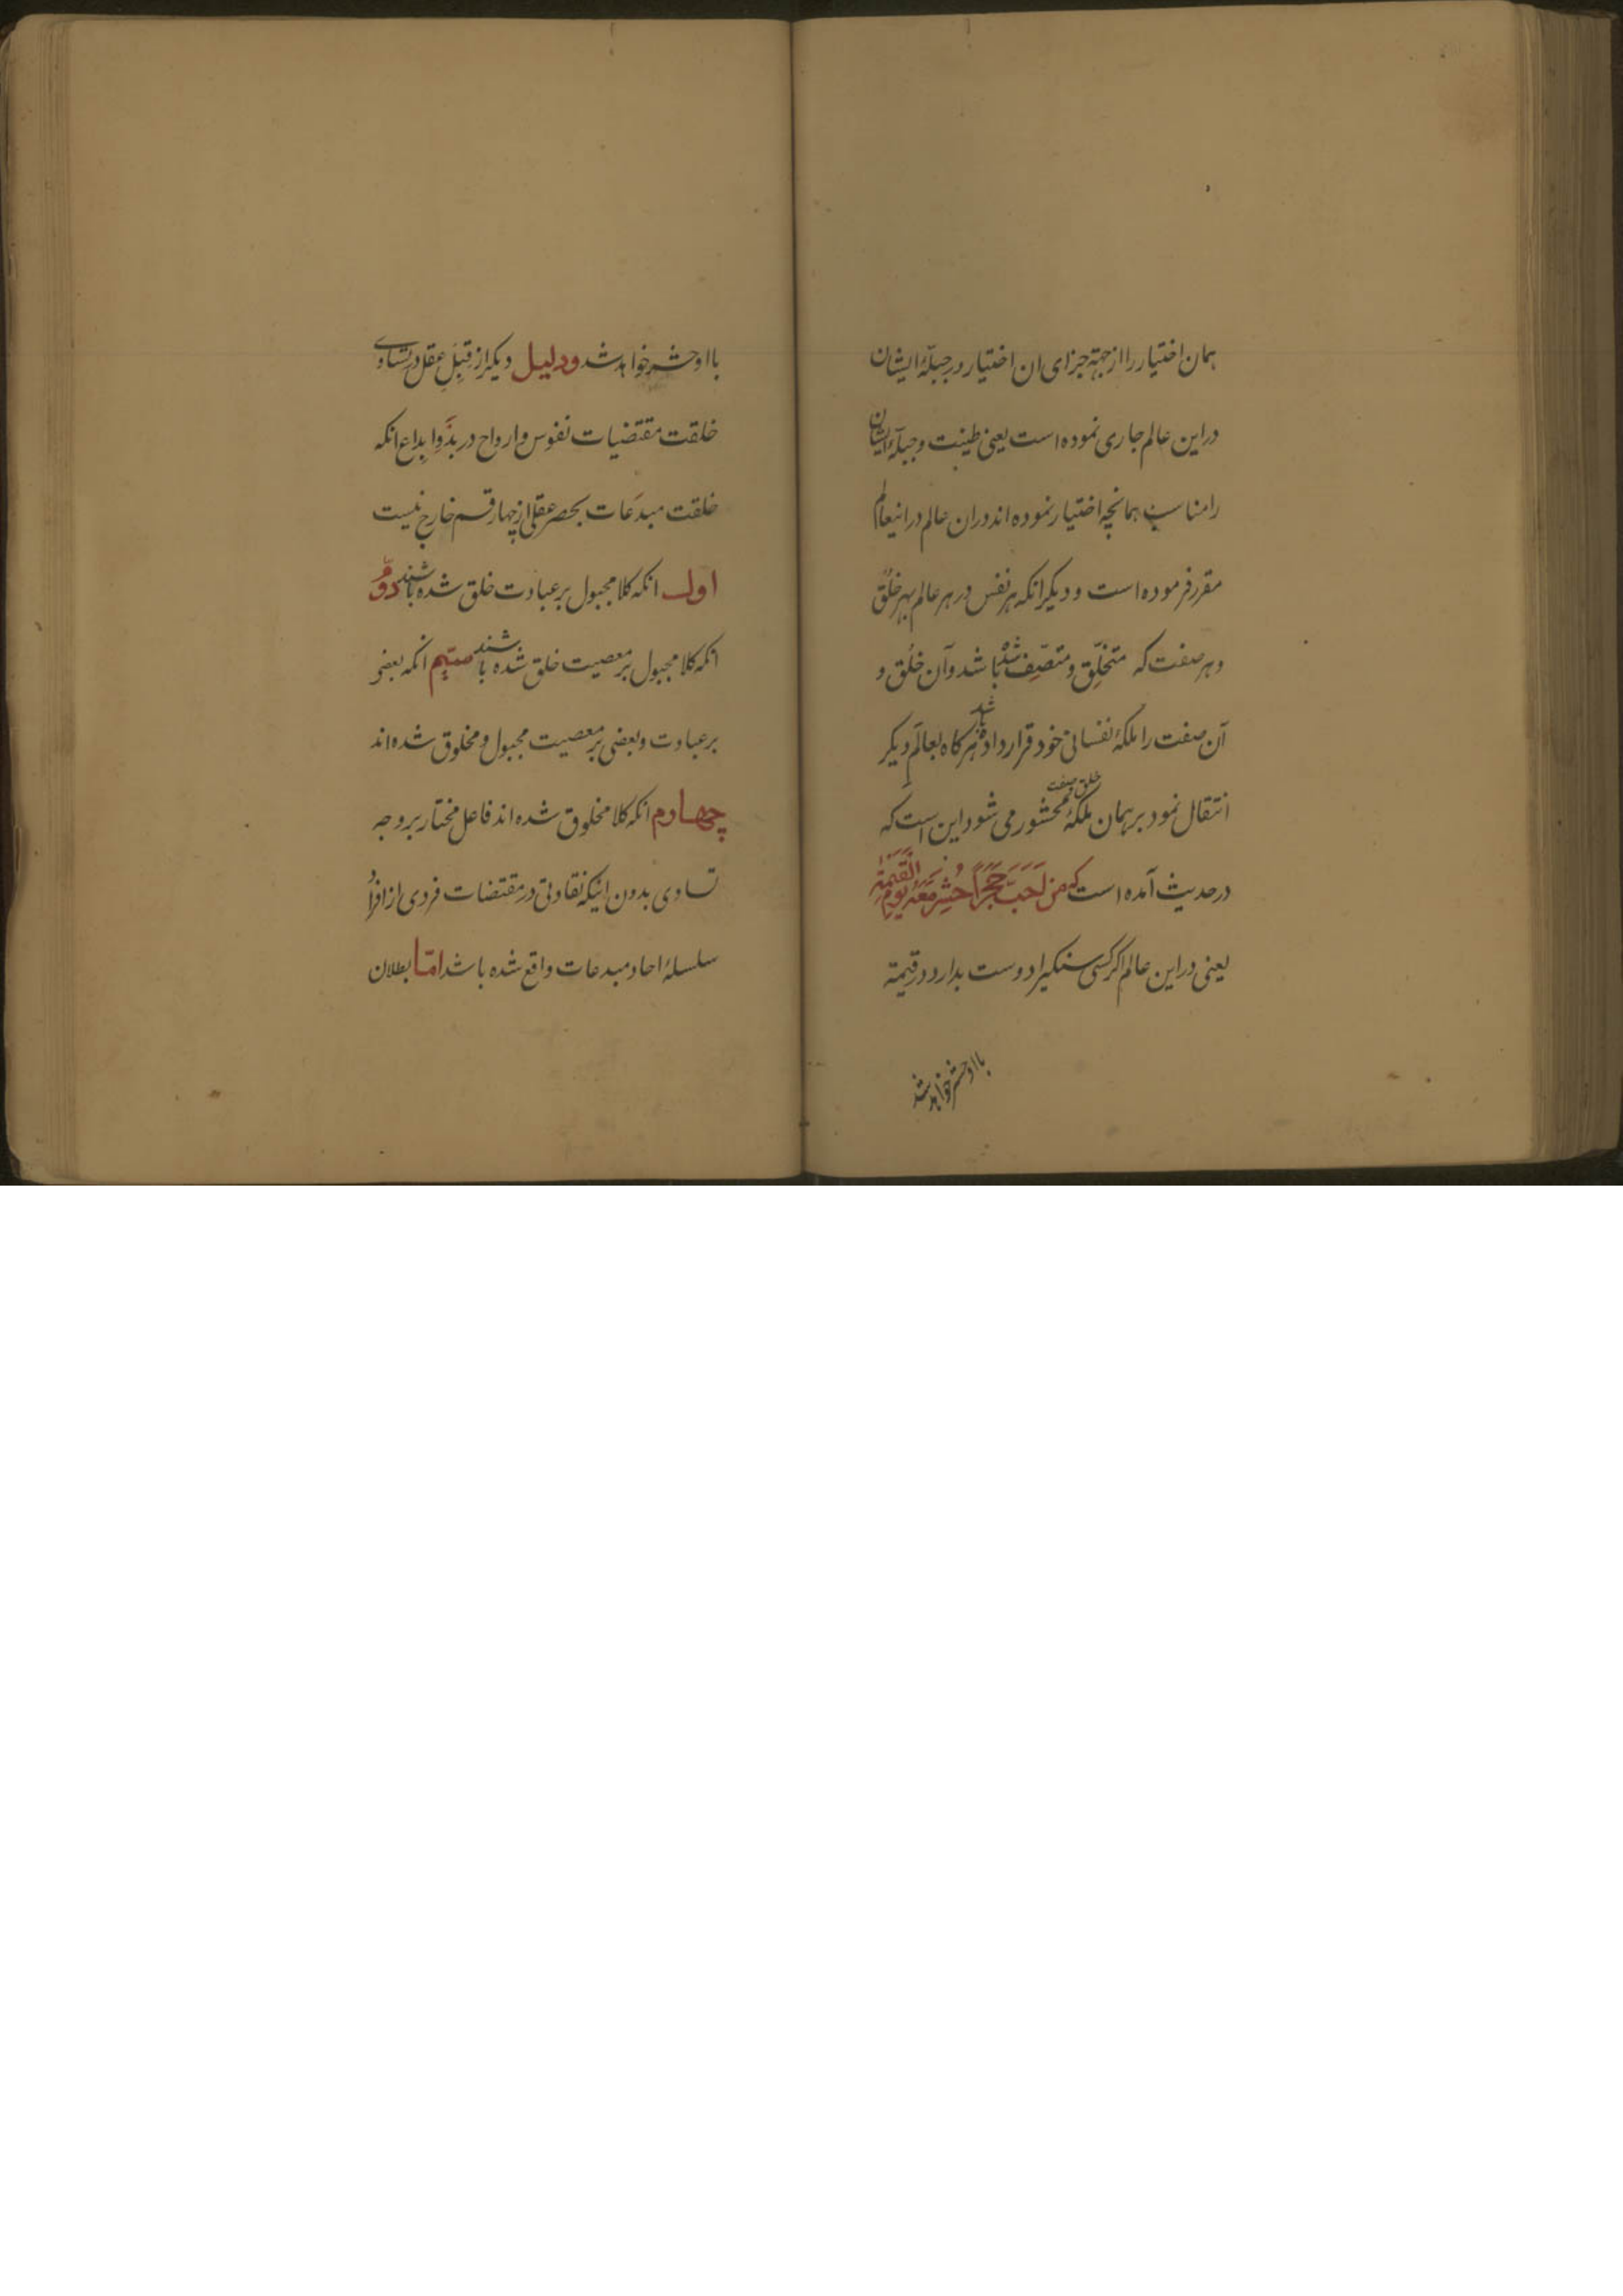 همان اختیار را از جهته جزای ان اختیار در جبلّهٔ ایشان
در این عالم جاری نموده است یعنی طینت و جبلّهٔ ایشان
را مناسب همانچه اختیار نموده اند در ان عالم در اینعالم
مقرر فرموده است و دیگر انکه هر نفس در هر عالم بهر خلُق
و هر صفت که متخلّق و متصّف شده باشد و آن خلُق و
آن صفت را ملکهٔ نفسانی خود قرار داده باشد هرکاه بعالَم دیکر
انتقال نمود بر همان خلق و صفت ملکهٔ محشور می شود این است که
در حدیث آمده است که مَن اَحَبَّ حَجَراً حُشِرَ مَعَهُ یَومَ القیٰمة
یعنی در این عالم اکر کسی سنکیرا دوست بدارد در قیمة
با او حشر خواهد شد
با او حشر خواهد شد و دلیل دیکر از قِبَلِ عقل در تساوی
خلقت مقتضیات نفوس و ارواح در بدَو ابداع انکه
خلقت مبدَعات بحصر عقلی از چهار قسم خارج نیست
اول انکه کلا مجبول بر عبادت خلق شده باشند دوّم
انکه کلا مجبول بر معصیت خلق شده باشند سیّم انکه بعضی
بر عبادت و بعضی بر معصیت مجبول و مخلوق شده اند
چهارم انکه کلا مخلوق شده اند فاعل مختار بر وجه
تساوی بدون اینکه تفاوتی در مقتضات فردی از افراد
سلسلهٔ احاد مبدعات واقع شده باشد امّا بطلان